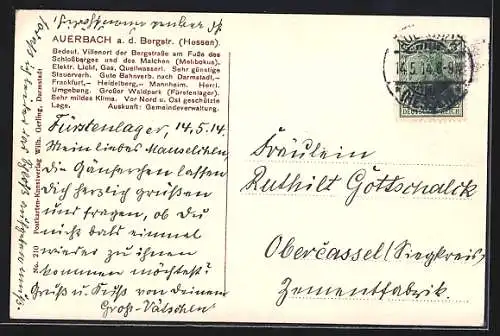 AUERBACH a. d. Bergstr. (Hessen).
Bedeut. Villenort der Bergstraße am Fuße des
Schloßberges und des Malchen (Melibokus).
Elektr. Licht, Gas, Quellwasserl. Sehr günstige
Steuerverh. Gute Bahnverb. nach Darmstadt,–
Frankfurt,– Heidelberg,– Mannheim. Herrl.
Umgebung. Großer Waldpark (Fürstenlager).
Sehr mildes Klima. Vor Nord u. Ost geschützte
Lage. Auskunft: Gemeindeverwaltung.
Fürstenlager, 14.5.14.
Mein liebes
die Gänserchen lassen
Dich herzlich grüßen
und fragen, ob Du
nicht bald einmal
wieder zu ihnen
kommen möchtest?
Gruß u. Kuß von Deinem
Groß-
No. 210 Postkarten-Kunstverlag Wilh. Gerling, Darmstadt
14.5.14.8-9
DEUTSCHES REICH
Fräulein
Ruthilt Gottschalck
Obercassel (Siegkreis)
Zementfabrik.